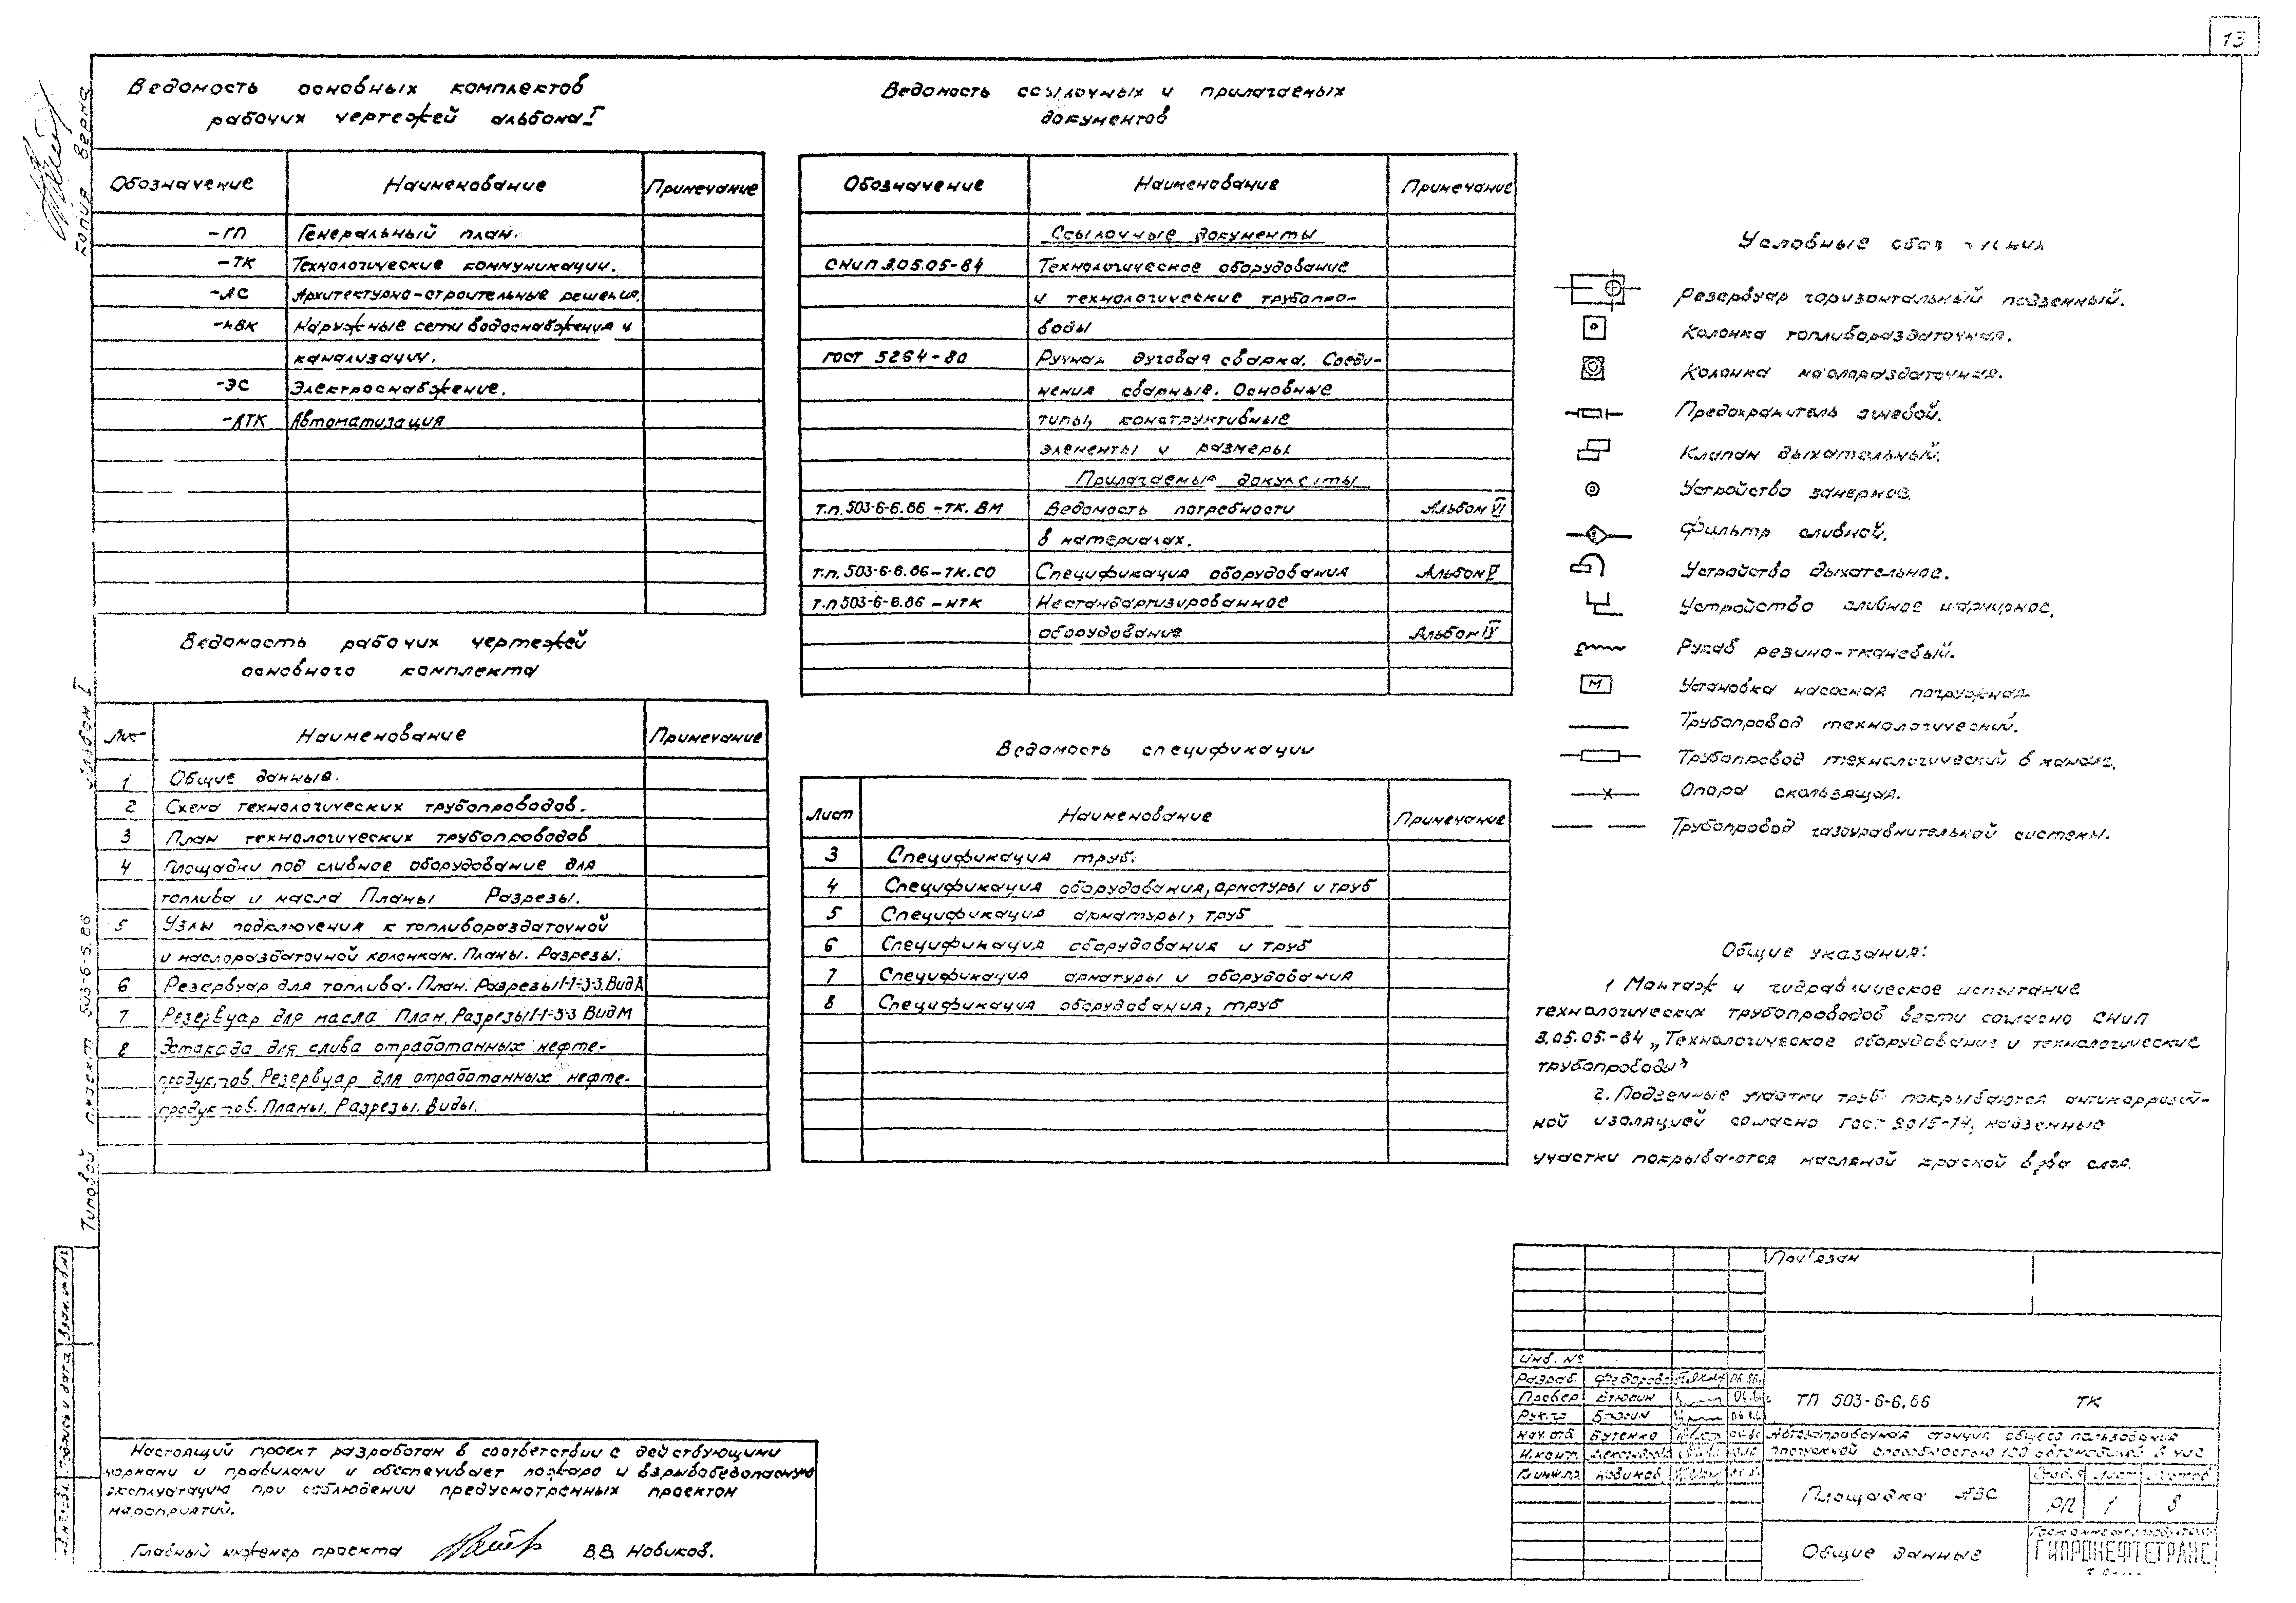 13
Копия верна
Ведомость основных комплектов
рабочих чертежей альбома I
Обозначение Наименование Примечание
-ГП Генеральный план.
-ТК Технологические коммуникации.
-АС Архитектурно-строительные решения.
-НВК Наружные сети водоснабжения и
канализации.
-ЭС Электроснабжение.
-АТК Автоматизация
Ведомость рабочих чертежей
основного комплекта
Лист Наименование Примечание
1 Общие данные.
2 Схема технологических трубопроводов.
3 План технологических трубопроводов
4 Площадки под сливное оборудование для
топлива и масла Планы Разрезы.
5 Узлы подключения к топливораздаточной
и маслораздаточной колонкам. Планы. Разрезы.
6 Резервуар для топлива. План. Разрезы 1-1÷3-3. Вид А
7 Резервуар для масла План. Разрезы 1-1÷3-3 Вид М
8 Эстакада для слива отработанных нефте-
продуктов. Резервуар для отработанных нефте-
продуктов. Планы. Разрезы. Виды.
Ведомость ссылочных и прилагаемых
документов
Обозначение Наименование Примечание
Ссылочные документы
СНиП 3.05.05-84 Технологическое оборудование
и технологические трубопро-
воды
ГОСТ 5264-80 Ручная дуговая сварка. Соеди-
нения сварные. Основные
типы, конструктивные
элементы и размеры
Прилагаемые документы
Т.п. 503-6-6.86 -ТК. ВМ Ведомость потребности Альбом VI
в материалах.
Т.п. 503-6-6.86-ТК.СО Спецификация оборудования Альбом V
Т.п 503-6-6.86 -НТК Нестандартизированное
оборудование Альбом IV
Ведомость спецификации
Лист Наименование Примечание
3 Спецификация труб.
4 Спецификация оборудования, арматуры и труб
5 Спецификация арматуры, труб
6 Спецификация оборудования и труб
7 Спецификация арматуры и оборудования
8 Спецификация оборудования, труб
Условные
Резервуар горизонтальный подземный.
Колонка топливораздаточная.
Колонка маслораздаточная.
Предохранитель огневой.
Клапан дыхательный.
Устройство замерное.
Фильтр сливной.
Устройство дыхательное.
Устройство сливное шарнирное.
Рукав резино-тканевый.
М Установка насосная погружная
Трубопровод технологический.
Трубопровод технологический в канале.
Опора скользящая.
Трубопровод газоуравнительной системы.
Общие указания:
1 Монтаж и гидравлическое испытание
технологических трубопроводов вести согласно СНиП
3.05.05.-84 „Технологическое оборудование и технологические
трубопроводы"
2. Подземные участки труб покрываются антикоррозий-
ной изоляцией согласно ГОСТ 9015-74, надземные
участки покрываются масляной краской в два слоя.
Альбом I
Типовой проект 503-6-6.86
Подпись и дата Взам. инв. №
Настоящий проект разработан в соответствии с действующими
нормами и правилами и обеспечивает пожаро и взрывобезопасную
эксплуатацию при соблюдении предусмотренных проектом
мероприятий.
Главный инженер проекта В.В. Новиков.
Привязан
Инв. №
Разраб. Федорова 06.86
Провер Бтюсин
Рук. гр.
Нач. отд. Бутенко
Н.конт.
Гл.инж.пр. Новиков
ТП 503-6-6.86 ТК
Автозаправочная станция общего пользования
пропускной способностью 100 автомобилей в час
Площадка АЗС
Стадия Лист Листов
РП 1 8
Общие данные
ГИПРОНЕФТЕТРАНС